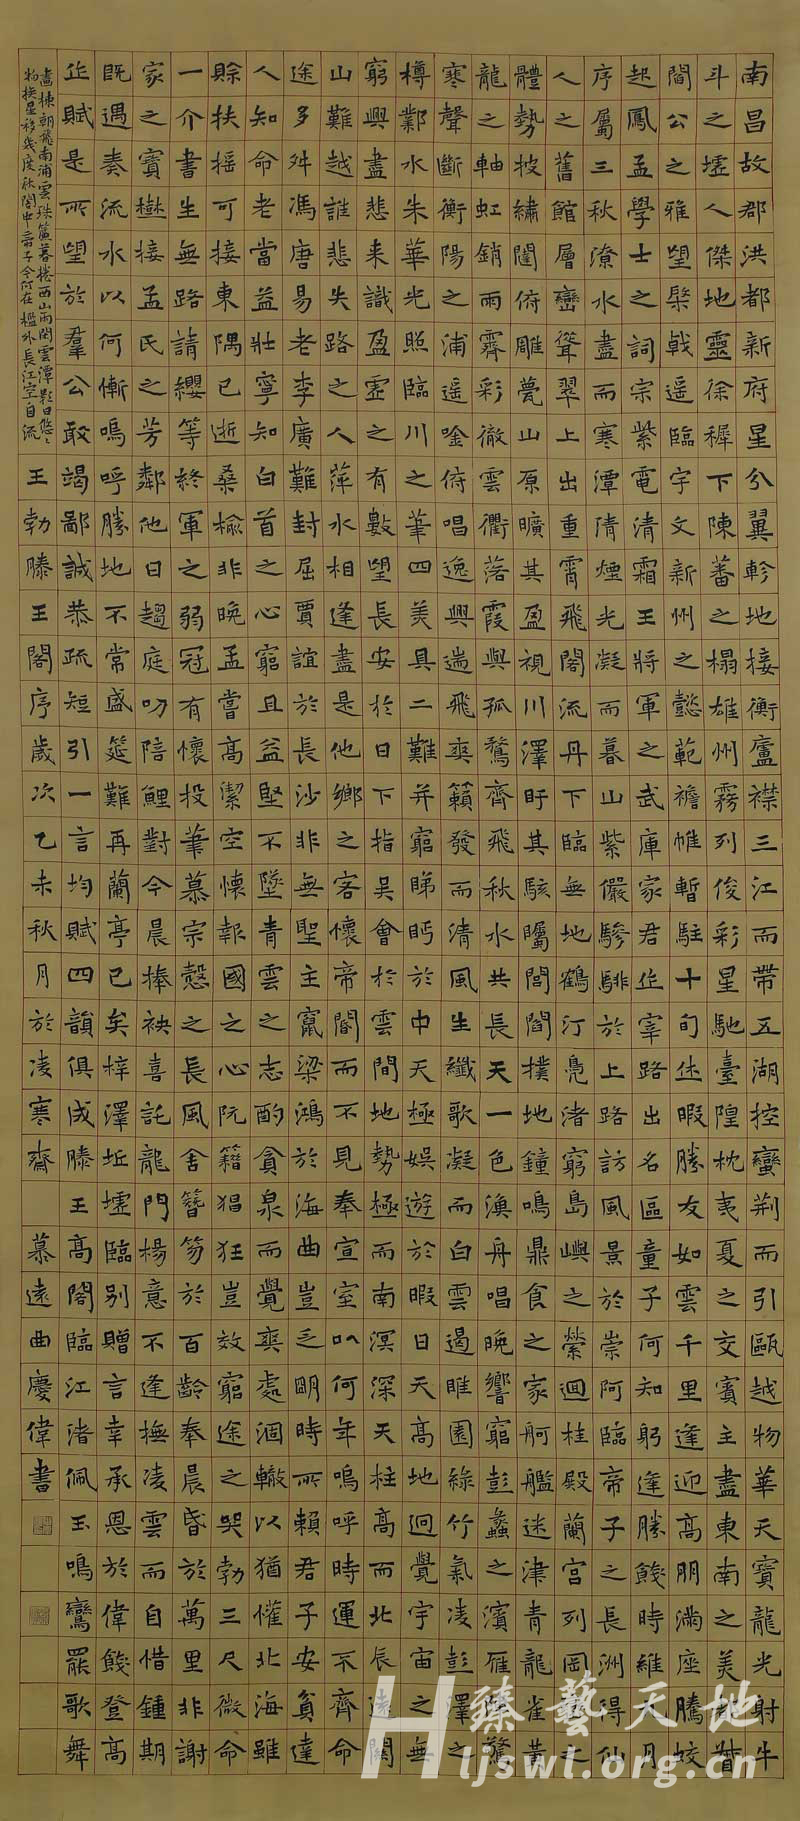 南昌故郡洪都新府星分翼軫地接衡廬襟三江而帶五湖控蠻荊而引甌越物華天寶龍光射牛
斗之墟人傑地靈徐穉下陳蕃之榻雄州霧列俊彩星馳臺隍枕夷夏之交賓主盡東南之美都督
閻公之雅望棨戟遥臨宇文新州之懿範襜帷暫駐十旬休暇勝友如雲千里逢迎高朋滿座騰蛟
起鳳孟學士之詞宗紫電清霜王將軍之武庫家君作宰路出名區童子何知躬逢勝餞時維九月
序屬三秋潦水盡而寒潭清煙光凝而暮山紫儼驂騑於上路訪風景於崇阿臨帝子之長洲得仙
人之舊館層巒聳翠上出重霄飛閣流丹下臨無地鶴汀鳧渚窮島嶼之縈迴桂殿蘭宮列岡巒之
體勢披繡闥俯雕甍山原曠其盈視川澤盱其駭矚閭閻撲地鐘鳴鼎食之家舸艦迷津青龍雀黃
龍之軸虹銷雨霽彩徹雲衢落霞與孤鶩齊飛秋水共長天一色漁舟唱晚響窮彭蠡之濱雁陣驚
寒聲斷衡陽之浦遥唫俯唱逸興遄飛爽籟發而清風生纖歌凝而白雲遏睢園綠竹氣凌彭澤之
樽鄴水朱華光照臨川之筆四美具二難并窮睇眄於中天極娛遊於暇日天高地迥覺宇宙之無
窮興盡悲来識盈虛之有數望長安於日下指吳會於雲間地勢極而南溟深天柱高而北辰遠關
山難越誰悲失路之人萍水相逢盡是他鄉之客懷帝閽而不見奉宣室以何年嗚呼時運不齊命
途多舛馮唐易老李廣難封屈賈誼於長沙非無聖主竄梁鴻於海曲豈乏明時所賴君子安貧達
人知命老當益壯寧知白首之心窮且益堅不墜青雲之志酌貪泉而覺爽處涸轍以猶懽北海雖
賒扶搖可接東隅已逝桑榆非晚孟嘗高潔空懷報國之心阮籍猖狂豈效窮途之哭勃三尺微命
一介書生無路請纓等終軍之弱冠有懷投筆慕宗慤之長風舍簪笏於百齡奉晨昏於萬里非謝
家之寶樹接孟氏之芳鄰他日趨庭叨陪鯉對今晨捧袂喜託龍門楊意不逢撫凌雲而自惜鍾期
既遇奏流水以何慚嗚呼勝地不常盛筵難再蘭亭已矣梓澤丘墟臨別贈言幸承恩於偉餞登高
作賦是所望於羣公敢竭鄙誠恭疏短引一言均賦四韻俱成滕王高閣臨江渚佩玉鳴鸞罷歌舞
畫棟朝飛南浦雲珠簾暮捲西山雨閑雲潭影日悠々
物換星移幾度秋閣中帝子今何在檻外長江空自流
王勃滕王閣序歲次乙未秋月於凌寒齋 慕遠曲慶偉書
臻藝天地
Hljswt.org.cn